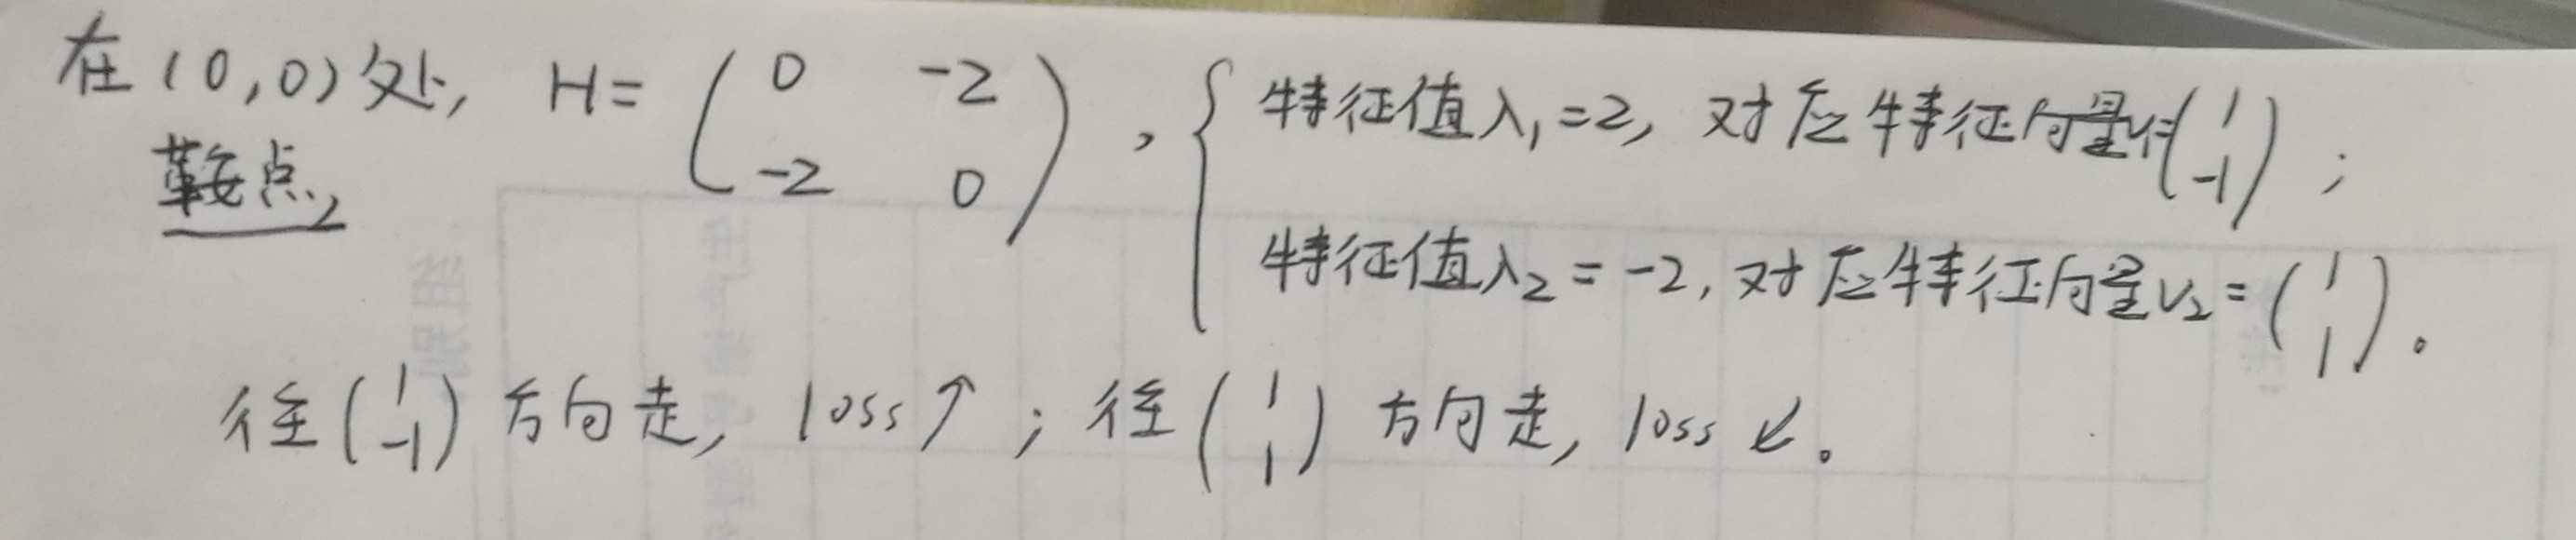 在(0,0)处, H= ( 0 -2 ; -2 0 ), { 特征值λ₁=2, 对应特征向量v₁=( 1 ; -1 );
鞍点,
特征值λ₂=-2, 对应特征向量v₂=( 1 ; 1 )。
往( 1 ; -1 )方向走, loss↗; 往( 1 ; 1 )方向走, loss↙。